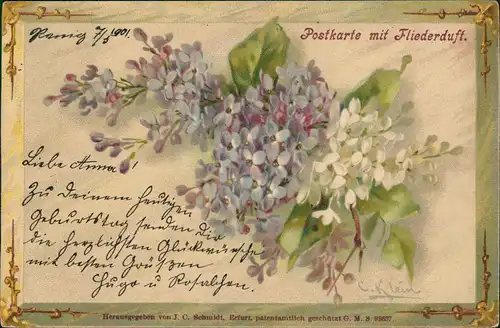 Penig 7/5 1901.
Postkarte mit Fliederduft.
Liebe Anna!
Zu Deinem heutigen
Geburtstag senden Dir
die herzlichsten Glückwünsche
mit besten Grüßen
Hugo u Rosalchen.
C. Klein
Herausgegeben von J. C. Schmidt, Erfurt, patentamtlich geschützt G. M. S.